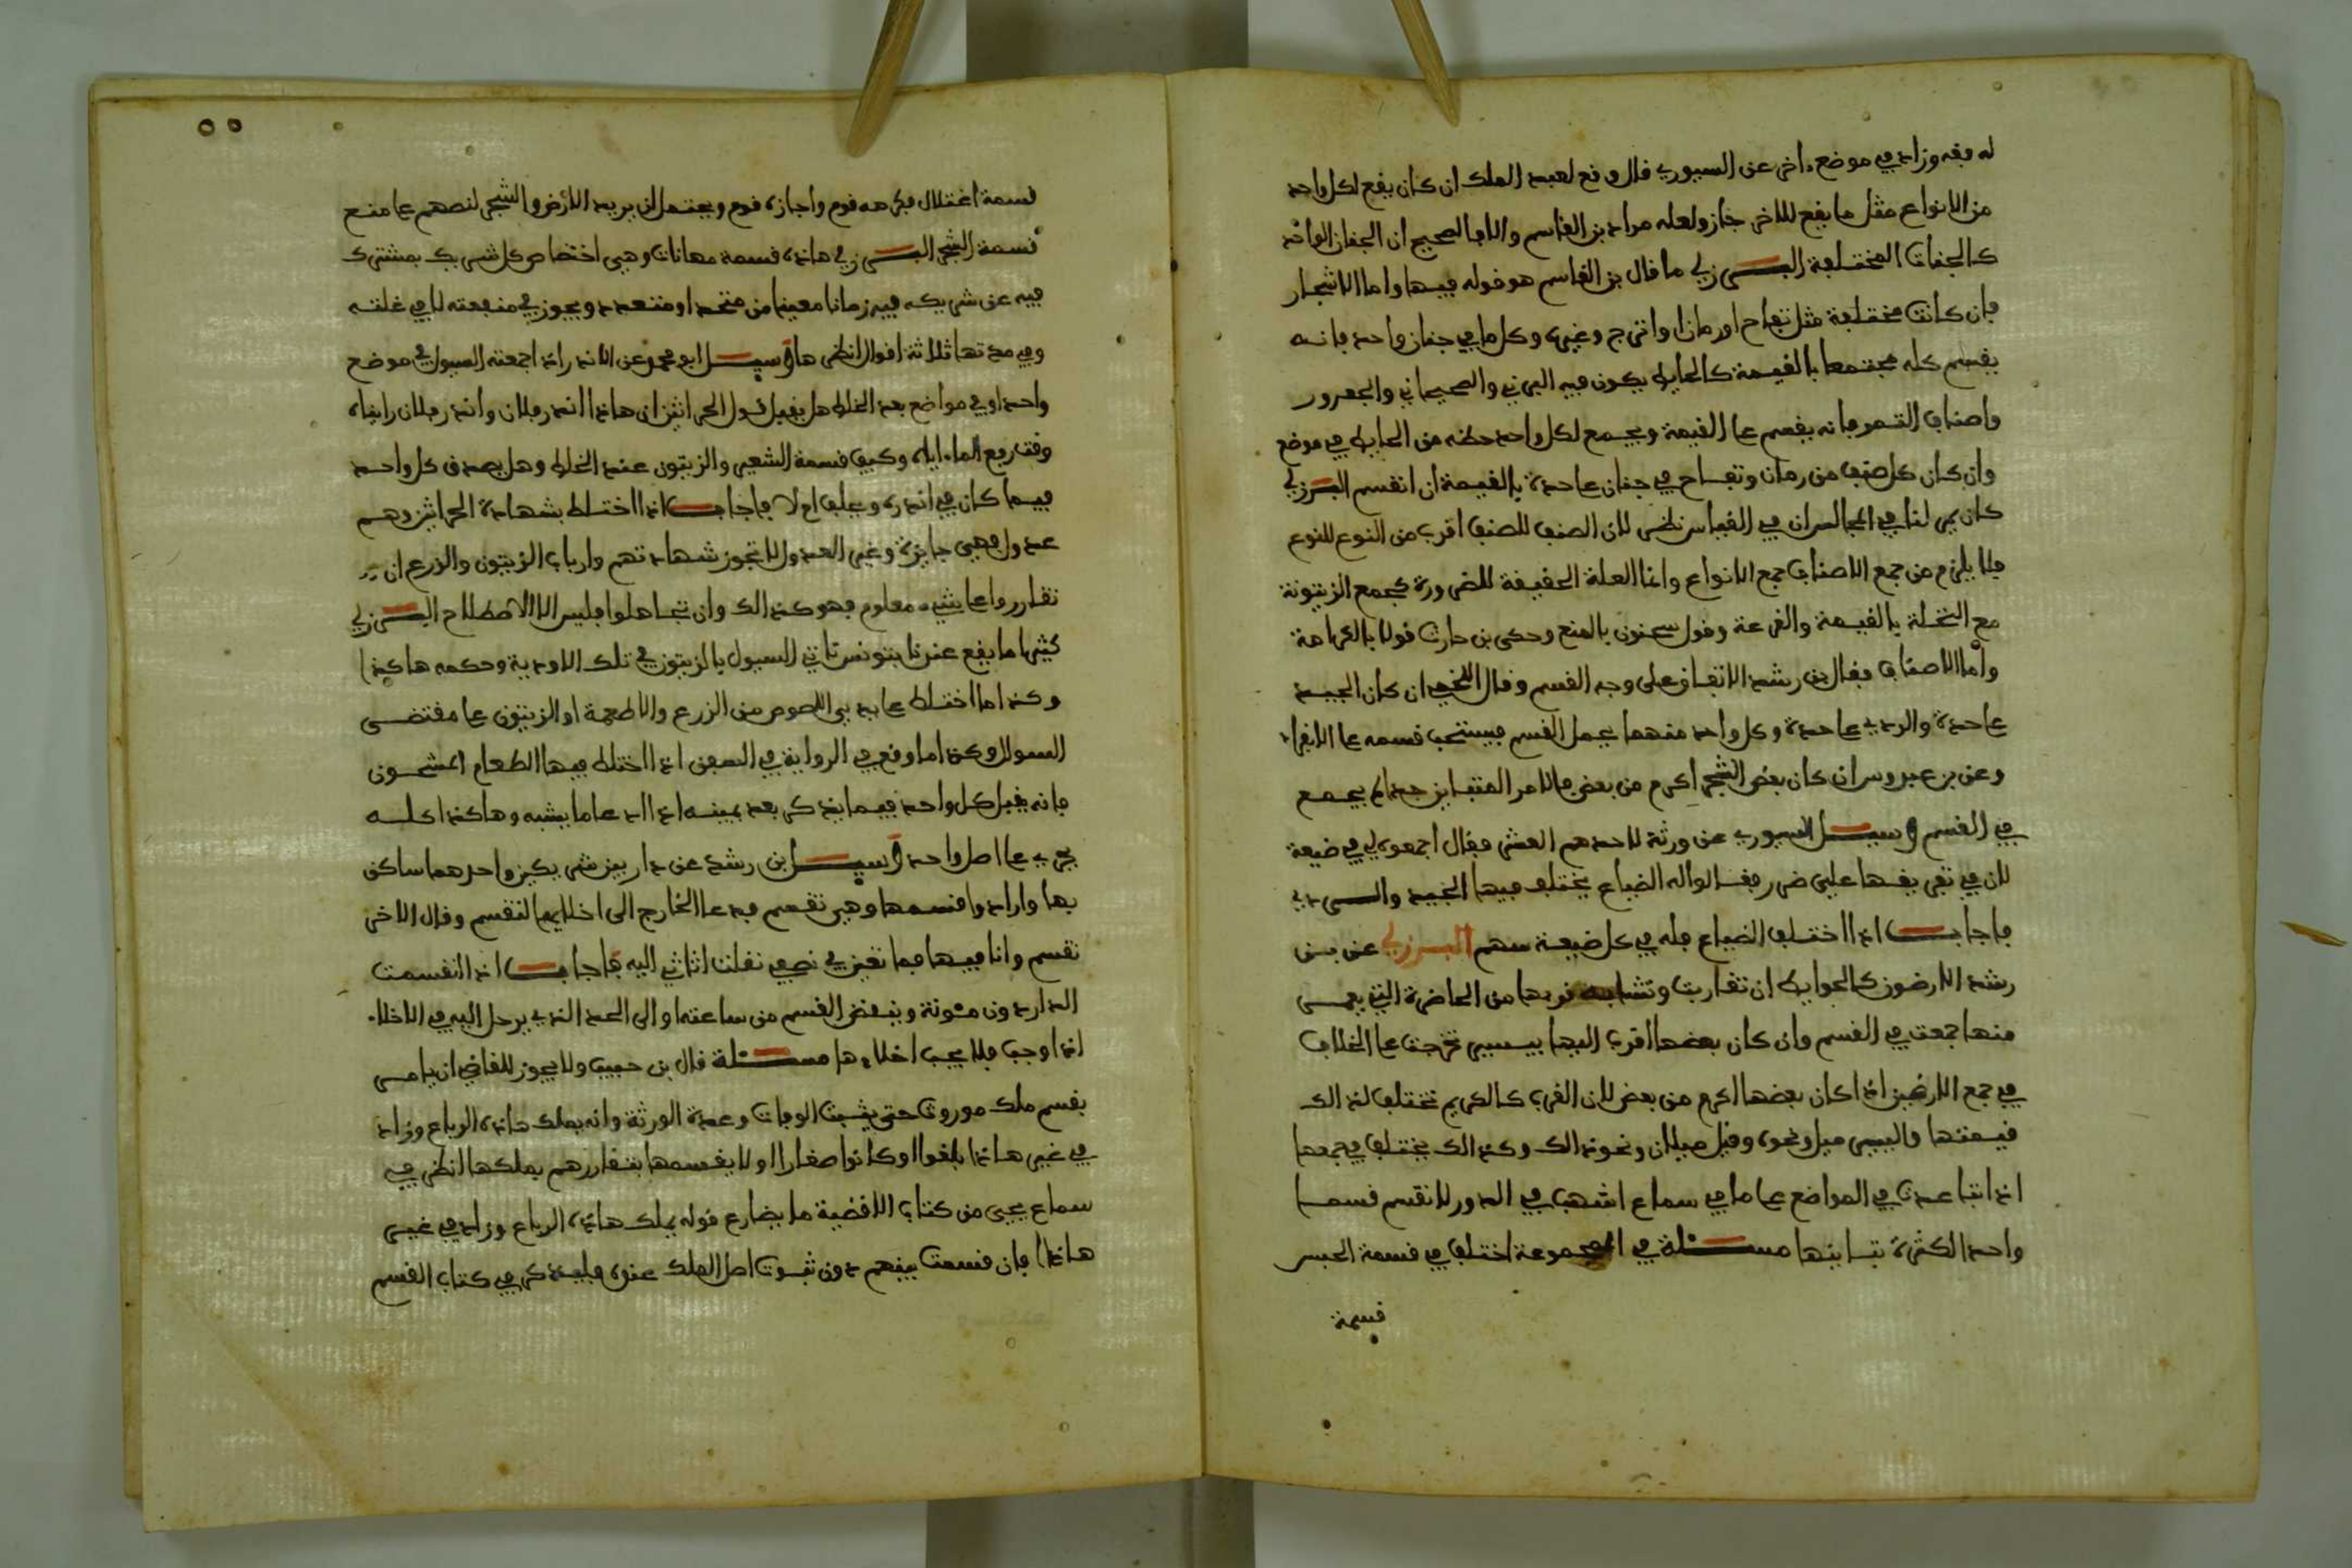 له بقه وزاد في موضع ءاخر عن السيوري قال وقع لعبد الملك ان كان يقع لكل واحد
من الانواع مثل ما يقع للاخر جاز ولعله مراد بن القاسم والا فالصحيح ان الجنان الواحد
كالجنات المختلفة البسرزلي ما قال بن القاسم هو قوله فيها واما الاشجار
فان كانت مختلفة مثل تفاح او رمان او اترج وغيره وكلها في جنان واحد فانه
يقسم كله مجتمعا بالقيمة كالحايط يكون فيه البرني والصيحاني والجعرور
واصناف التمر فانه يقسم على القيمة ويجمع لكل واحد حظه من الحايط في موضع
وان كان كل صنف من رمان وتفاح في جنان على حدة بالقيمة ان انقسم البرزلي
كان يمر لنا في المجالس ان في القياس نظر لان الصنف للصنف اقرب من النوع للنوع
فلا يلزم من جمع الاصناف جمع الانواع وانما العلة الحقيقة للضرورة كجمع الزيتونة
مع النخلة بالقيمة والقرعة وقول سحنون بالمنع وحكى بن حارث قولا بالكراهة
وأما الاصناف فقال بن رشد الاتفاق على وجه القسم وقال اللخمي ان كان الجيد
على حدة والردي على حدة وكل واحد منهما يحمل القسم فيستحب قسمه على الانفراد
وعن بن عبدوس ان كان بعض الشجر اكرم من بعض فالامر المتباين جدا لم يجمع
في القسم وسيـل السيوري عن ورثة لاحدهم العشر فقال اجمعوه لي في ضيعة
لان في تفريقها علي ضرر فقالوا له الضياع يختلف فيها الجيد والسردي
فاجاب اذا اختلف الضياع فله في كل ضيعة سهم البرزلي عن بن
رشد الارضون كالحوايط ان تقاربت وتشابه قربها من الحاضرة التي يعمر
منها جمعت في القسم وان كان بعضها اقرب اليها بيسير خرجت على الخلاف
في جمع الارضين اذا كان بعضها اكرم من بعض لان القرب كالكريم تختلف لذالك
قيمتها واليسير ميل ونحوه وقيل ميلان ونحو ذالك وكذالك يختلف في جمعها
اذا تباعدت في المواضع على ما في سماع اشهب في الدور لا نقسم قسما
واحد الكثرة تباينها مسئلة في المجموعة اختلف في قسمة الحبس
قسمة
قسمة اغتلال فكرهه قوم واجازه قوم ويحتمل ان يريد الارض والشجر لنصهم على منع
قسمة الشجر البسرزلي هاذه قسمة مهانات وهي اختصاص كل شريك بمشترك
فيه عن شريكه فيه زمانا معينا من متحد او متعدد ويجوز في منفعته لا في غلته
وفي مدتها ثلاثة اقوال انظرها وسيـل ابو محمد عن الاندر اذا جمعته السيول في موضع
واحد او في مواضع بعد الخلط هل يقبل قول الحراثين ان هاذا اندر فلان واندر فلان رايناه
وقت رفع الماء اياه وكيف قسمة الشعير والزيتون عند الخلط وهل يصدق كل واحد
فيما كان في اندره ويحلف ام لا فاجاب اذا اختلط بشهادة الحراثين وهم
عدول فهي جايزة وغير العدول لا تجوز شهادتهم وارباب الزيتون والزرع ان
تقارروا على شيء معلوم فهو كذالك وان تجاهلوا فليس الا الاصطلاح البسرزلي
كثيرا ما يقع عندنا بتونس تاتي السيول بالزيتون في تلك الاودية وحكمه هاكذا
وكذا ما اختلط على يدي اللصوص من الزرع والاطعمة او الزيتون على مقتضى
السوال وكذا ما وقع في الرواية في السفن اذا اختلط فيها الطعام المشحون
فانه يقبل كل واحد فيما يذكر بعد يمينه اذا ادعا ما يشبه وهاكذا كله
يجري على اصل واحد وسيـل بن رشد عن دار بين شريكين واحدهما ساكن
بها وارادوا قسمها وهي تقسم فدعا الخارج الى اخلايها لتقسم وقال الاخر
تقسم وانا فيها فما تعين في نصفي نقلت اثاثي اليه فاجاب اذا انقسمت
الدار دون مئونة وينفض القسم من ساعته والى الحد الذي يرحل اليه في الاخلاء
اذا وجب فلا يجب اخلاءها مسئلة قال بن حبيب ولا يجوز للقاضي ان يامر
بقسم ملك موروث حتى يثبت الوفات وعدة الورثة وانه يملك هاذه الرباع وزاد
في غير هاذا بلغوا او كانوا صغارا ولا يقسمها بتقاررهم بملكها انظر في
سماع يحيى من كتاب الاقضية ما يضارع قوله يملك هاذه الرباع وزاد في غير
هاذا فان قسمت بينهم دون ثبوت اصل الملك عنده فليذكر في كتاب القسم